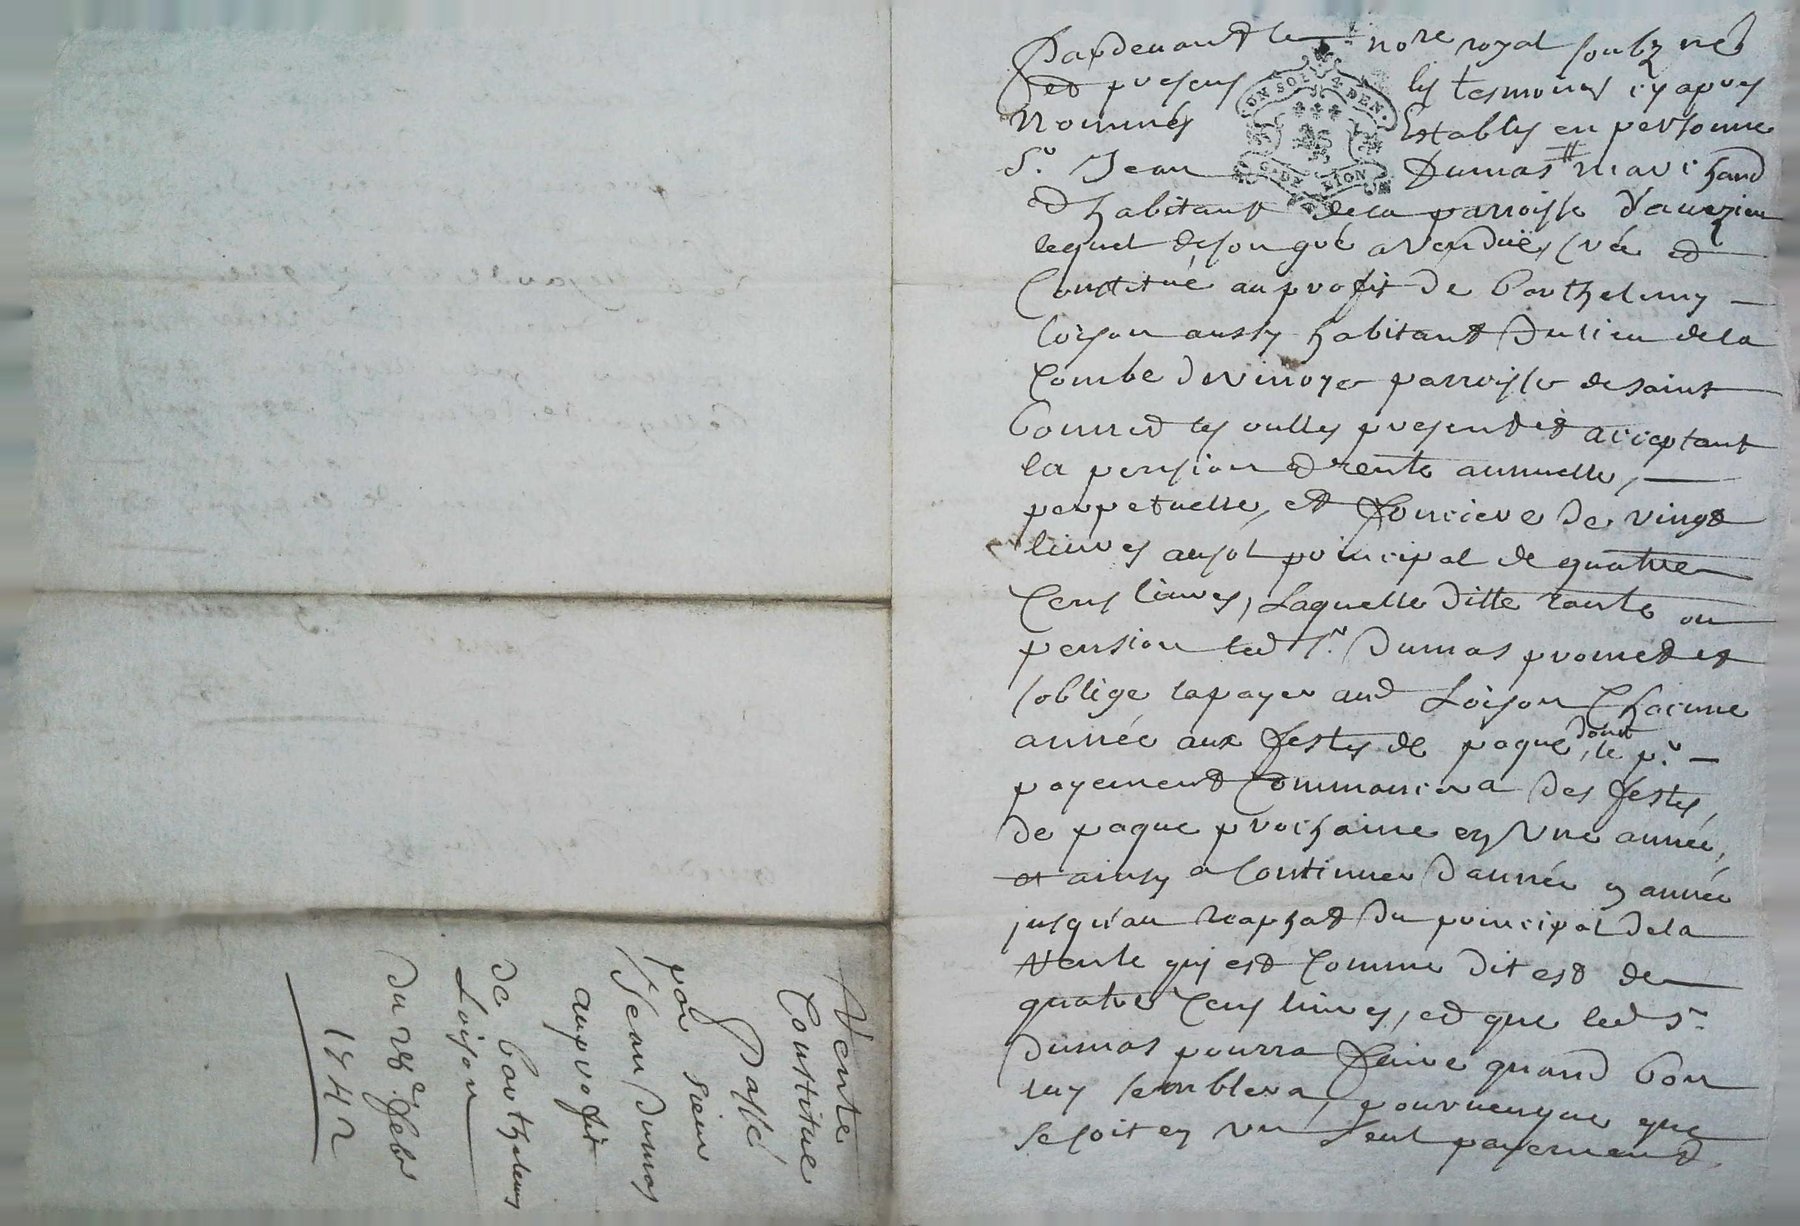 Pardevant le nore royal soubz né
et presens les tesmoins cy apres
Nommés Establys en personne
Sr. Jean Dumas marchand
et habitant de la parroisse d'auezieu
lequel de son gré a vendüe, créé et
Constitué au profit de barthelemy
loison aussy habitant du lieu de la
Combe parroisse de saint
bonnet les oulles present et acceptant
la pension et rente annuelle,
perpetuelle, et fonciere de vingt
liures au sol principal de quatre
Cens liures, Laquelle ditte rante ou
pension led Sr. Dumas promet et
soblige la payer aud Loison Chacune
année aux festes de paque, dont le pr.
payement Commancera des festes
de paque prochaine en Vne année,
et ainsy a Continuer dannée en année
jusqu'au reachat du principal de la
Rente quj est Comme dit est de
quatre Cens liures, et que led Sr.
Dumas pourra faire quand bon
luy semblera, pourueuque que
se soit en vn seul payement
Vente
Constitue
Passé
par sieur
Jean Dumas
au profit
de barthelemy
Loison
du 28e. febr
1742
UN SOL 4 DEN.
G. DE LION